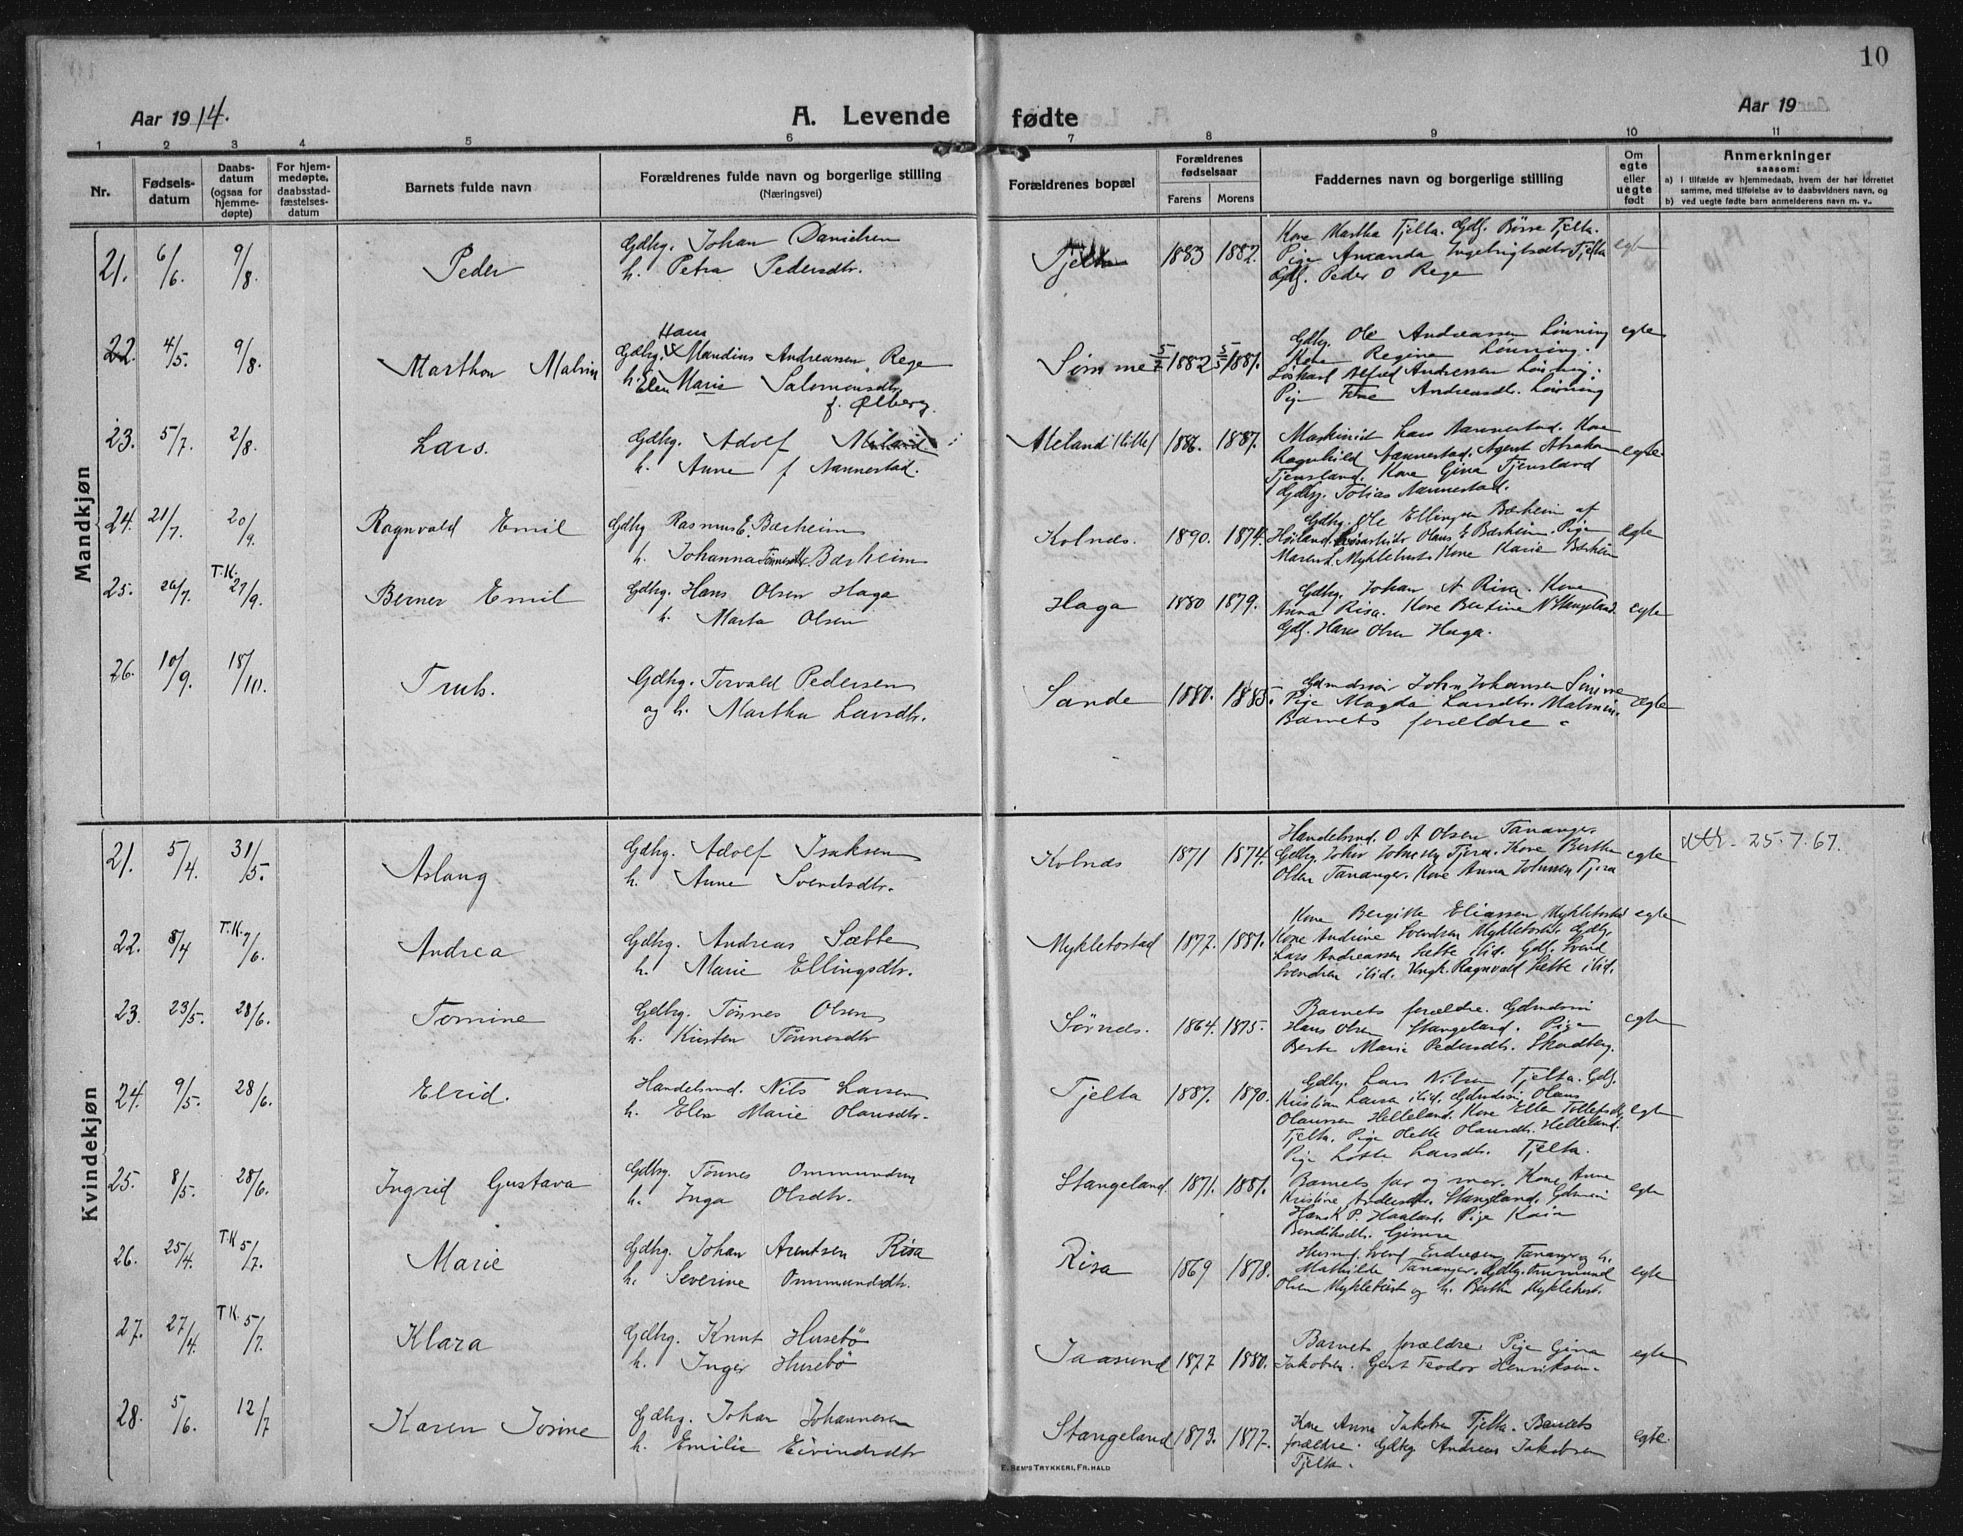 10
Aar 1914.
A. Levende fødte
Aar 19
1 2 3 4 5 6 7 8 9 10 11
Nr.
Fødsels-
datum
Daabs-
datum
(ogsaa for
hjemme-
døpte)
For hjem-
medøpte,
daabsstad-
fæstelses-
datum
Barnets fulde navn
Forældrenes fulde navn og borgerlige stilling
(Næringsvei)
Forældrenes bopæl
Forældrenes
fødselsaar
Farens Morens
Faddernes navn og borgerlige stilling
Om
egte
eller
uegte
født
Anmerkninger
saasom:
a) i tilfælde av hjemmedaab, hvem der har forrettet
samme, med tilføielse av to daabsvidners navn, og
b) ved uegte fødte barn anmelderens navn m. v..
Mandkjøn
21. 6/6. 9/8. Peder
Gdbg. Johan Danielsen
h. Petra Pedersdtr.
Tjelta 1883 1882.
Kone Martha Tjelta. Gdf. Børre Tjelta.
Pige Amanda Ingebrigtsdtr Tjelta
Gdf. Peder O Rege
egte
22. 4/5. 9/8. Marthon Malvin
Hans
Gdbg. Mandius Andreassen Rege
h. Elen Marie Salomonsdtr.
f. Ølberg.
Sømme 5/2 1882 5/5 1881.
Gdbg. Ole Andreassen Lønning
Kone Regine Lønning.
Løskarl Alfred Andreassen Lønning.
Pige Andreasdtr. Lønning
egte
23. 5/7. 2/8. Lars.
Gdbg. Adolf Meland.
h. Anne f Nannestad.
Meland (Litle) 1886. 1887.
Maskinist Lars Nannestad. Kone
Ragnhild Nannestad. Agent Abraham
Tjensland. Kone Gina Tjensland
Gdbg. Tobias Nannestad.
egte
24. 21/7. 20/9. Ragnvald Emil
Gdbg Rasmus E. Bærheim
h. Johanna Tønnesdtr Bærheim
Kolnes. 1890. 1874.
Gdbg. Ole Ellingsen Bærheim af
Høiland. Olaus E Bærheim. Pige
Maren L. Myklebust. Kone Karie Bærheim
egte
25. 26/7. T.K. 27/9. Berner Emil
Gdbg. Hans Olsen Haga
h. Marta Olsen
Haga 1880 1879.
Gdbg. Johan A Risa. Kone
Anna Risa. Kone Bertine N Stangeland.
Gdf. Hans Olsen Haga.
egte
26. 10/9. 18/10. Truls.
Gdbg. Torvald Pedersen
og h. Martha Larsdtr.
Sande 1880. 1885.
Gdmdssøn John Johansen Sømme
Pige Magda Larsdtr. Malmin.
Barnets forældre
egte
Kvindekjøn
21. 5/4. 31/5. Aslaug
Gdbg. Adolf Isaksen
h. Anne Svendsdtr.
Kolnes 1871 1874.
Handelsmd. O A Olsen Tananger.
Gdbg. John Johnsen Tjora. Kone Berthe
Olsen Tananger. Kone Anna Johnsen Tjora
egte
25.7.67.
22. 8/4 T.K. 7/6. Andrea
Gdbg. Andreas Sætte
h. Marie Ellingsdtr.
Myklebostad 1877. 1881.
Kone Bergitte Eliassen Myklebostad
Kone Andrine Svendsen Myklebostad. Gdbg.
Lars Andreassen Sætte ibid. Gdf. Svend
Svendsen ibid. Ungk. Ragnvald Sætte ibid.
egte
23. 23/5. 28/6. Tomine
Gdbg. Tønnes Olsen
h. Kirsten Tønnesdtr
Sørnes. 1864. 1875.
Barnets forældre. Gdmdssøn
Hans Olsen Stangeland. Pige
Berte Marie Pedersdtr. Skadberg.
egte
24. 9/5. 28/6. Elrid.
Handelsmd. Nils Larsen
h. Elen Marie Olausdtr.
Tjelta 1887. 1890.
Gdbg. Lars Nilsen Tjelta. Gdf.
Kristian Larsen ibid. Gdmdssøn Olaus
Olaussen Helleland. Kone Ellen Tollefsdtr.
Tjelta. Pige Olette Olausdtr. Helleland.
Pige Lotte Larsdtr. Tjelta.
egte
25. 8/5. 28/6. Ingrid Gustava
Gdbg. Tønnes Ommundsen
h. Inga Olsdtr.
Stangeland 1871. 1881.
Barnets far og mor. Kone Anne
Kristine Stangeland. Gdmssøn
Hans K P. Haaland. Pige Kaia
Bendiksdtr. Gimre
egte
26. 25/4. T.K 5/7. Marie
Gdbg. Johan Arentsen Risa
h. Severine Ommundsdtr.
Risa 1869 1878.
Husmd. Svend Endresen Tananger og h.
Mathilde Tananger. Gdbg. Ommund
Olsen Myklebust og h. Berthe Myklebust.
egte
27. 27/4. T.K. 5/7. Klara
Gdbg. Knut Husebø
h. Inger Husebø
Jaasund 1877 1880.
Barnets forældre. Pige Gina
Jakobsen. Gert Teodor Henriksen
egte
28. 5/6. 12/7 Karen Josine
Gdbg. Johan Johannesen
h. Emilie Eivindsdtr
Stangeland 1873. 1877.
Kone Anna Jakobsen Tjelta. Barnets
forældre. Gdbg Andreas Jakobsen
Tjelta.
egte.
E. SEM'S TRYKKERI, FR.HALD